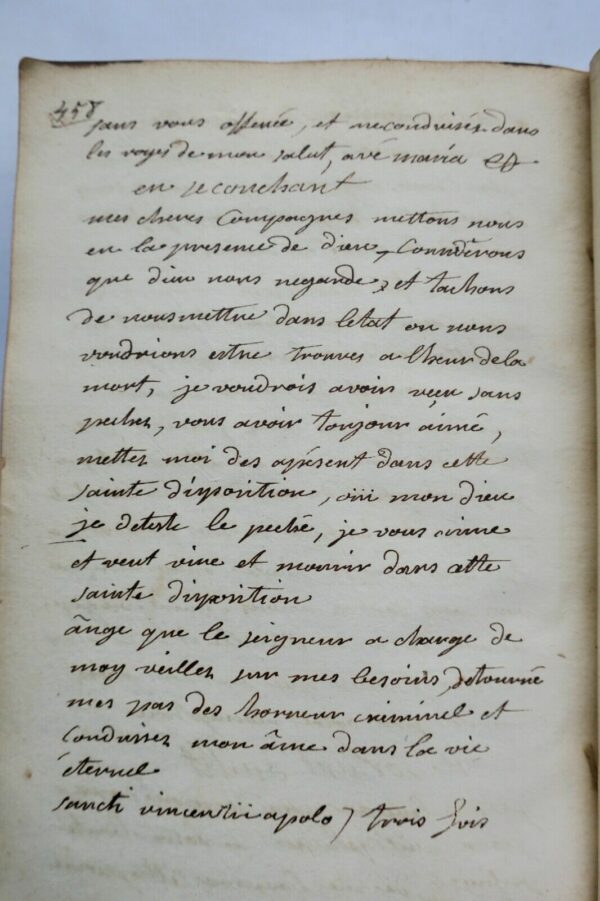 458
sans vous offencé, et me conduisés dans
les voyes de mon salut, avé maria &
en se couchant
mes cheres Compagnes mettons nous
en la presence de dieu, Considérons
que dieu nous regarde, et tachons
de nous mettre dans l'etat ou nous
voudrions estre trouves a lheur de la
mort, je voudrois avoir vecu sans
pechez, vous avoir toujour áimé,
mettez moi des apésent dans cette
sainte disposition, oui mon dieu
je deteste le peché, je vous aime
et veut vivre et mourir dans cette
sainte disposition
ânge que le seigneur a charge de
moy veillez sur mes besoins, detourné
mes pas des horreur criminel et
Conduisez mon âme dans la vie
éternel
sancti vincentii apolo) trois fois